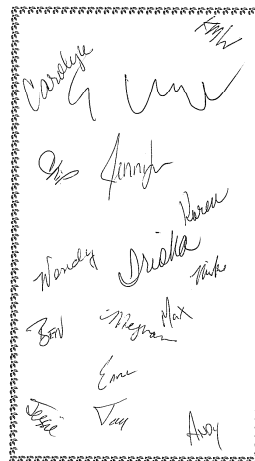 KMW
Carolyn
Chip
Jennifer
Karen
Wendy
Driska
Mike
BEN
Meghan
Max
Jessie
Jay
Andy